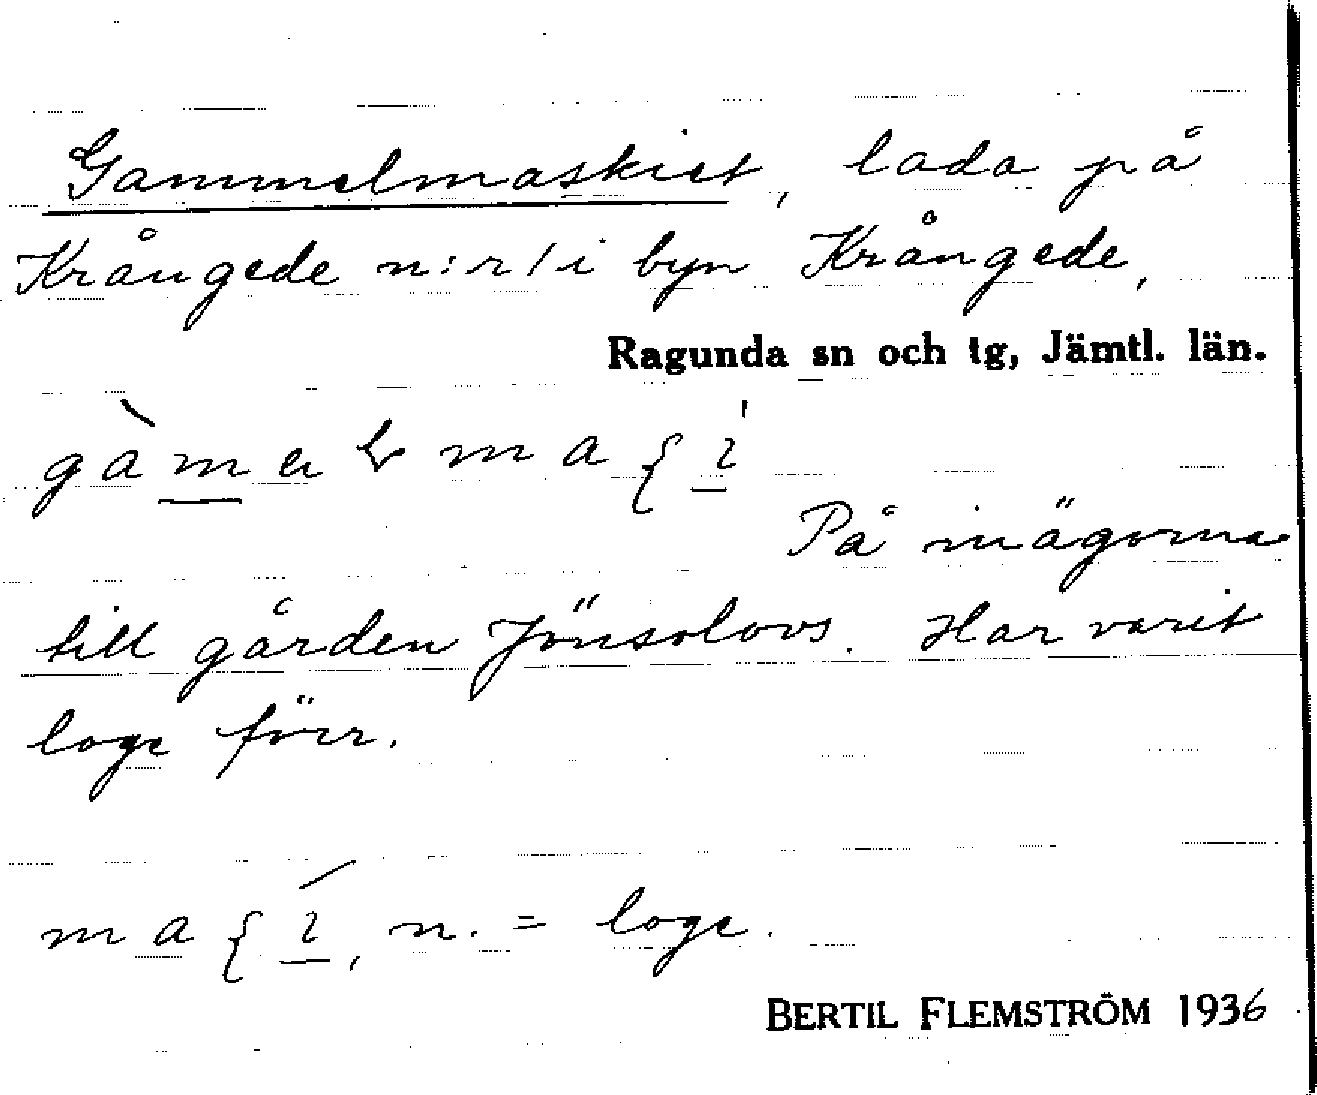 Gammelmaskiet, lada på
Krångede n:r 1 i byn Krångede,
Ragunda sn och tg, Jämtl. län.
På inägorna
till gården Jönsolovs. Har varit
loge förr.
n. = loge.
BERTIL FLEMSTRÖM 1936